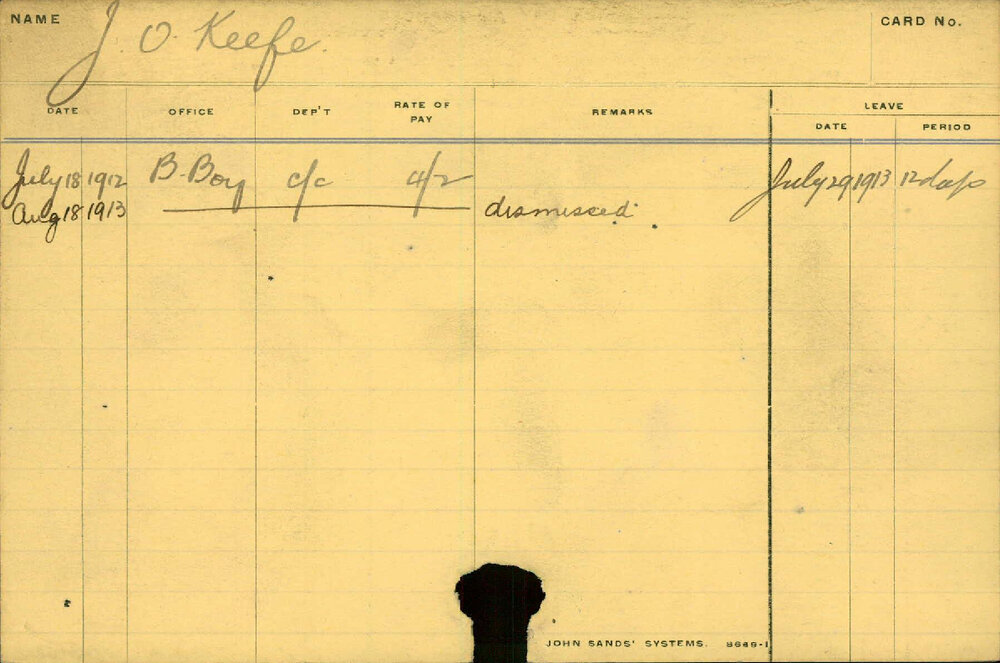 NAME J. O. Keefe. CARD No.
DATE OFFICE DEP'T RATE OF PAY REMARKS LEAVE
DATE PERIOD
July 18 1912 B. Boy c/c 4/2 July 29 1913 12 days
Aug 18 1913 dismissed
JOHN SANDS' SYSTEMS. 8669-1